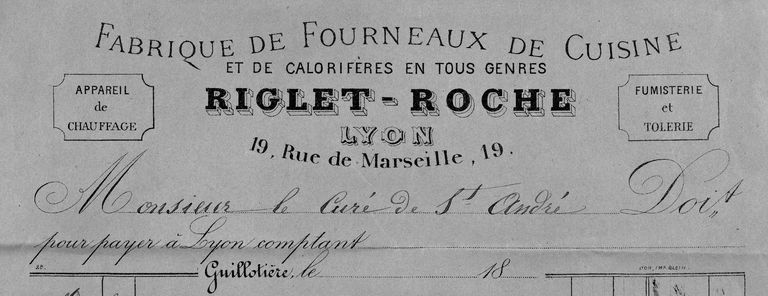 FABRIQUE DE FOURNEAUX DE CUISINE
ET DE CALORIFÈRES EN TOUS GENRES
APPAREIL
de
CHAUFFAGE
RIGLET-ROCHE
LYON
19, Rue de Marseille, 19.
FUMISTERIE
et
TOLERIE
Monsieur le Curé de St André Doit
pour payer à Lyon comptant
Guillotière, le 18